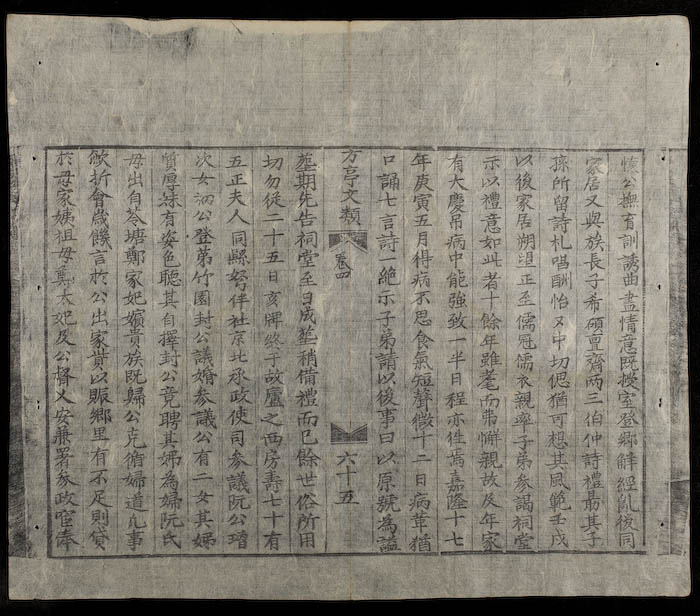 懷公撫育訓誘曲盡情意既授室登鄉解經亂後同
家居又與族長子希碩亶齋兩三伯仲詩禮勗其子
孫所留詩札唱酬怡又中切偲猶可想其風範壬戌
以後家居朔望正至儒冠儒衣親率子弟參謁祠堂
示以禮意如此者十餘年雖耄而弗懈親故及年家
有大慶吊病中能強致一半日程亦徃焉嘉隆十七
年庚寅五月得病不思食氣短聲微十二日病革猶
口誦七言詩一絶示子弟請以後事曰以原號為謚
方亭文類 卷四 六十五
塟期先告祠堂至日成塟稍備禮而已餘世俗所用
切勿從二十五日亥牌終于故廬之西房壽七十有
五正夫人同縣弩伴社京北承政使司參議阮公瑨
次女初公登第竹園封公議婚參議公有二女其娣
質厚妹有姿色聽其自擇封公竟聘其姊為婦阮氏
母出自苓塘鄭家妃嬪貴族既歸公克脩婦道凡事
飲折會歲饑言於公出家貲以賑鄉里有不足則貸
於母家姨祖母鄭太妃及公督乂安兼署參政官俸